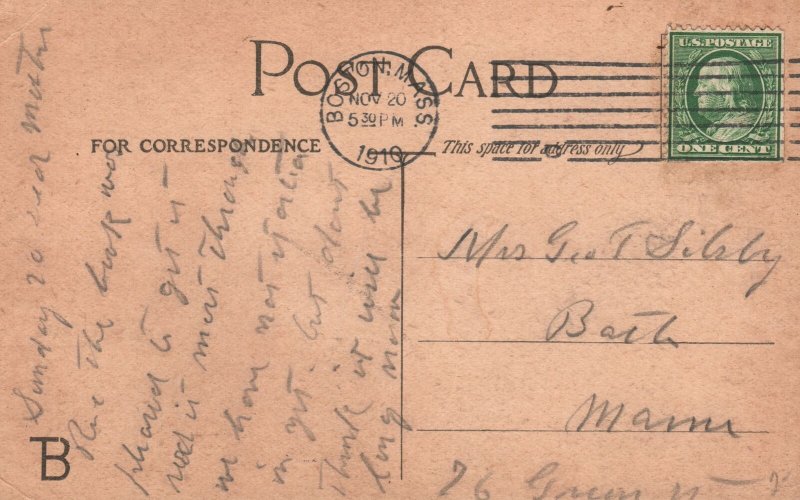 POST CARD
BOSTON, MASS.
NOV 20
5 30 PM
1910
U.S. POSTAGE
ONE CENT
FOR CORRESPONDENCE
This space for address only
Mrs Geo T Silsby
Bath
Maine
76 Green st
Sunday 20
Rec the book was
pleased to get it
read it most through
we have not
in yet. but dont
think it will be
long now
B